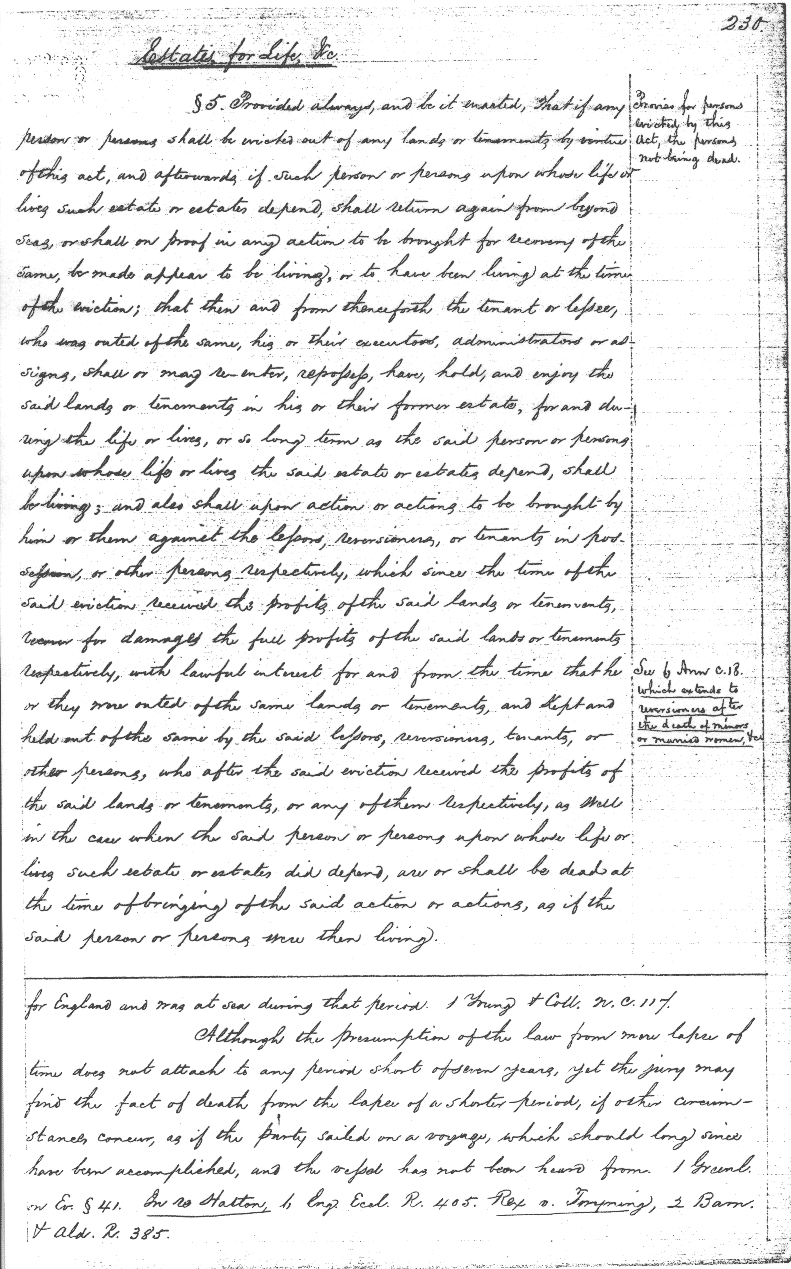 230.
Estates for Life, &c.
§ 5. Provided always, and be it enacted, That if any
person or persons shall be evicted out of any lands or tenements by virtue
of this act, and afterwards if such person or persons upon whose life or
lives such estate or estates depend, shall return again from beyond
seas, or shall on proof in any action to be brought for recovery of the
same, be made appear to be living, or to have been living at the time
of the eviction; that then and from thenceforth the tenant or lessee,
who was outed of the same, his or their executors, administrators or as-
signs, shall or may re-enter, repossess, have, hold, and enjoy the
said lands or tenements in his or their former estate, for and du-
ring the life or lives, or so long term as the said person or persons
upon whose life or lives the said estate or estates depend, shall
be living; and also shall upon action or actions to be brought by
him or them against the lessors, reversioners, or tenants in pos-
session, or other persons respectively, which since the time of the
said eviction received the profits of the said lands or tenements,
recover for damages the full profits of the said lands or tenements
respectively, with lawful interest for and from the time that he
or they were outed of the same lands or tenements, and kept and
held out of the same by the said lessors, reversioners, tenants, or
other persons, who after the said eviction received the profits of
the said lands or tenements, or any of them respectively, as well
in the case when the said person or persons upon whose life or
lives such estate or estates did depend, are or shall be dead at
the time of bringing of the said action or actions, as if the
said person or persons were then living.
Proviso for persons
evicted by this
Act, the persons
not being dead.
See 6 Ann c. 18.
which extends to
reversioners after
the death of minors
or married women, &c
for England and was at sea during that period. 1 Young & Coll. N. C. 117.
Although the presumption of the law from mere lapse of
time does not attach to any period short of seven years, yet the jury may
find the fact of death from the lapse of a shorter period, if other circum-
stances concur, as if the Party sailed on a voyage, which should long since
have been accomplished, and the vessel has not been heard from. 1 Greenl.
on Ev. § 41. In re Hatton, 1 Eng Eccl. R. 405. Rex v. Twyning, 2 Barn.
& Ald. R. 385.